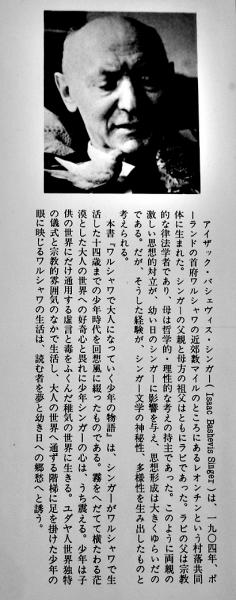 アイザック・バシェヴィス・シンガー（Isaac Bashevis Singer）は、一九〇四年、ポ
ーランドの首府ワルシャワの近郊数マイルのところにあるレオンチンという村落共同
体に生まれた。シンガーの父親と母方の祖父はともにラビであった。ラビの父は宗教
的な律法学者であり、母は哲学的・理性的な考えの持主であった。このように両親の
激しい思想的対立が、幼い日のシンガーに影響を与え、思想形成は大きくゆらいだの
である。だが、そうした経験が、シンガー文学の神秘性、多様性を生み出したものと
考えられる。
本書『ワルシャワで大人になっていく少年の物語』は、シンガーがワルシャワで生
活した十四歳までの少年時代を回想風に綴ったものである。霧をへだてて横たわる茫
漠とした大人の世界への好奇心と畏れに少年シンガーの心は、うち震える。少年は子
供の世界にだけ通用する虚言と毒をふくんだ稚気の世界に生きる。ユダヤ人世界独特
の儀式と宗教的雰囲気のなかで生活し、大人の世界へ通ずる階梯に足を掛けた少年の
眼に映じるワルシャワの生活は、読む者を夢と幼き日への郷愁へと誘う。